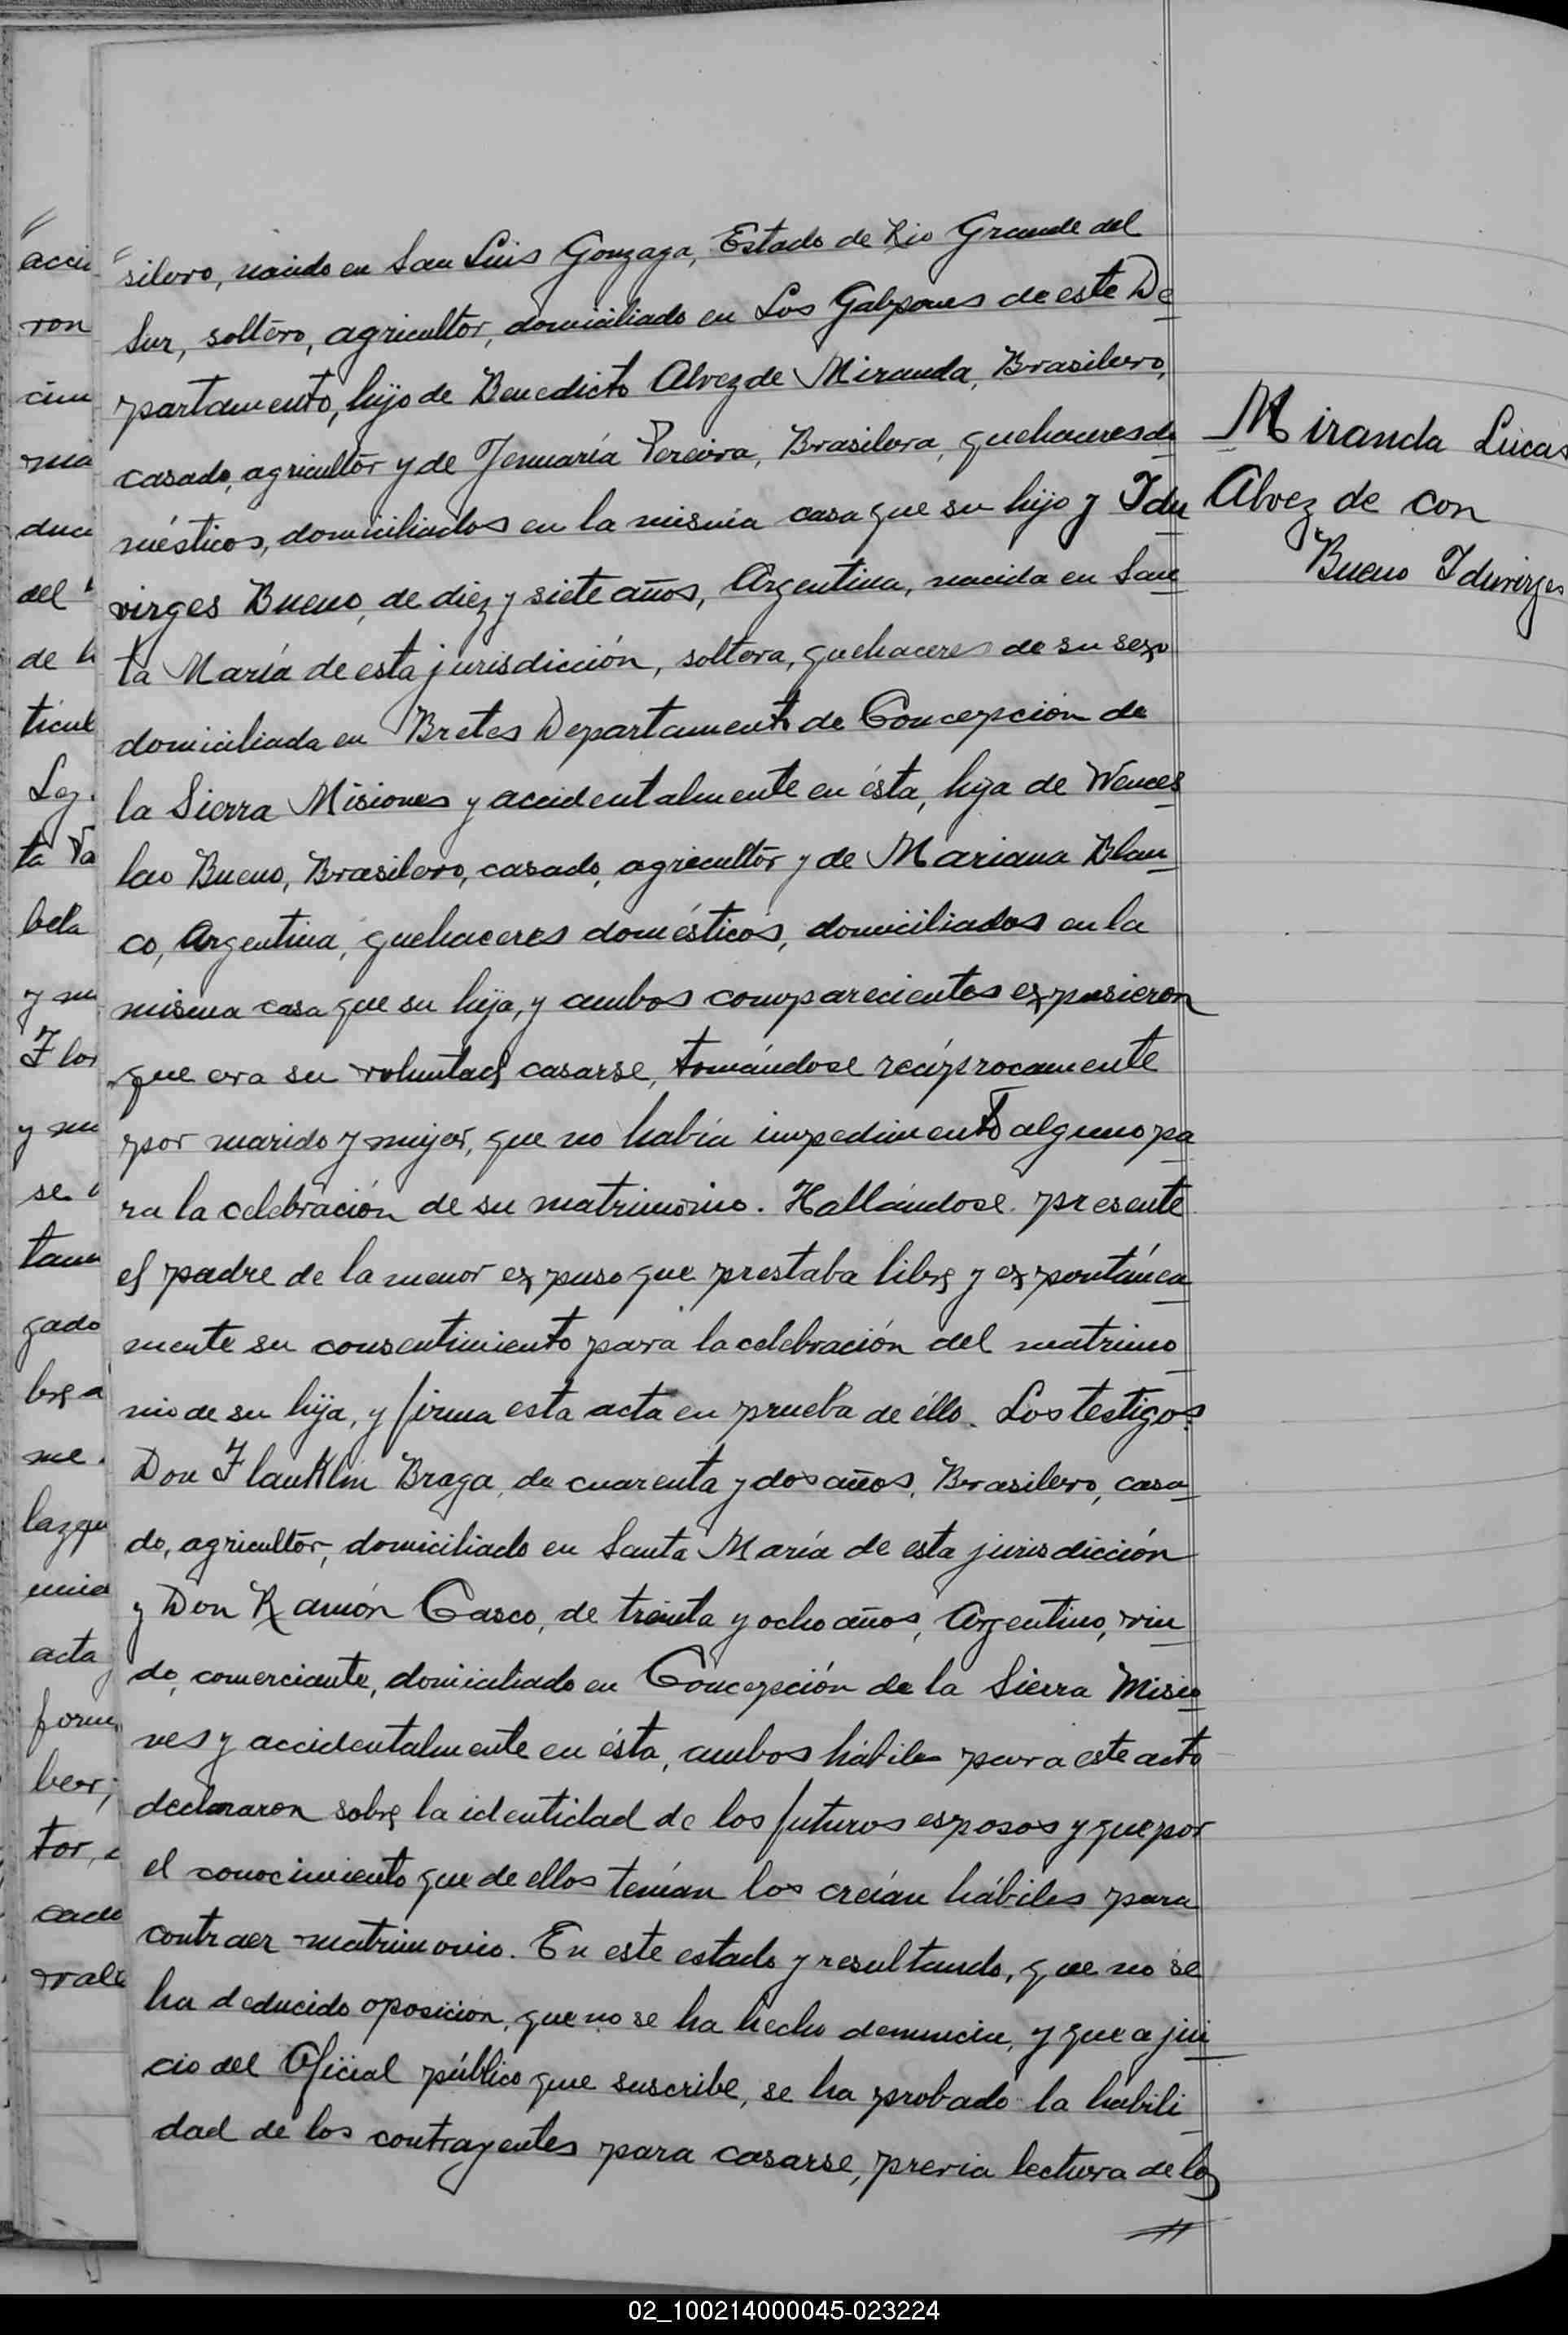 silero, nacido en San Luis Gonzaga, Estado de Rio Grande del
Sur, soltero, agricultor, domiciliado en Los Galpones de este De
partamento, hijo de Benedicto Alvez de Miranda, Brasilero,
casado, agricultor y de Jenuaría Pereira, Brasilera, quehaceres do
mésticos, domiciliados en la misma casa que su hijo y Idu
virges Bueno, de diez y siete años, Argentina, nacida en San
ta María de esta jurisdicción, soltera, quehaceres de su sexo
domiciliada en Bretes Departamento de Concepción de
la Sierra Misiones y accidentalmente en ésta, hija de Wences
lao Bueno, Brasilero, casado, agricultor y de Mariana Blan
co, Argentina, quehaceres domésticos, domiciliados en la
misma casa que su hija, y ambos comparecientes expusieron
que era su voluntad casarse, tomándose recíprocamente
por marido y mujer, que no había impedimento alguno pa
ra la celebración de su matrimonio. Hallándose presente
el padre de la menor expuso que prestaba libre y expontánea
mente su consentimiento para la celebración del matrimo
nio de su hija, y firma esta acta en prueba de éllo. Los testigos:
Don Flanklin Braga, de cuarenta y dos años, Brasilero, casa
do, agricultor, domiciliado en Santa María de esta jurisdicción
y Don Ramón Gasco, de treinta y ocho años, Argentino, viu
do, comerciante, domiciliado en Concepción de la Sierra Misio
nes y accidentalmente en ésta, ambos hábiles para este acto
declararon sobre la identidad de los futuros esposos y que por
el conocimiento que de ellos tenían los creían hábiles para
contraer matrimonio. En este estado y resultando, que no se
ha deducido oposicion, que no se ha hecho denuncia, y que a jui
cio del Oficial público que suscribe, se ha probado la habili
dad de los contrayentes para casarse, previa lectura de los
Miranda Lucas
Alvez de con
Bueno Iduvirges
accu
ron
cim
ma
duci
del
de h
ticul
Loz.
ta Va
bela
y su
Flor
y su
se
tam
gado
bre a
me
laz que
unia
acta
form
ber;
tor,
cado
vale
02_100214000045-023224